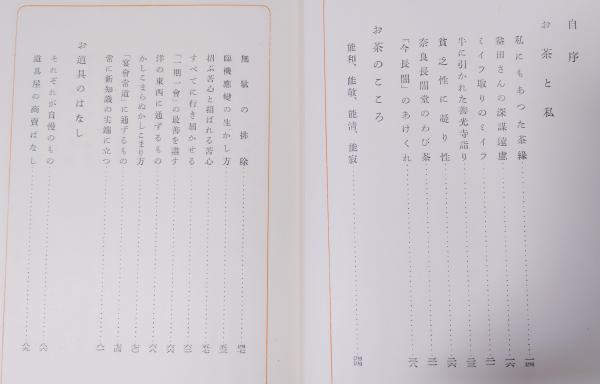 自序
お茶と私
私にもあつた茶縁……一四
益田さんの深謀遠慮……一六
ミイラ取りのミイラ……二一
牛に引かれた善光寺詣り……二三
貧乏性に凝り性……二六
奈良長闇堂のわび茶……三一
「今長闇」のあけくれ……三八
お茶のこころ
能和、能敬、能清、能寂……四四
無駄の排除……四七
臨機應變の生かし方……五三
招ぶ苦心と招ばれる苦心……五七
すべてに行き届かせる……六一
「一期一會」の最善を盡す……六六
洋の東西に通ずるもの……六八
かしこまらぬかしこまり方……七〇
「宴會常道」に通ずるもの……七四
常に新知識の尖端に立つ……八一
お道具のはなし
それぞれが自慢のもの……八六
道具屋の商賣ばなし……八九